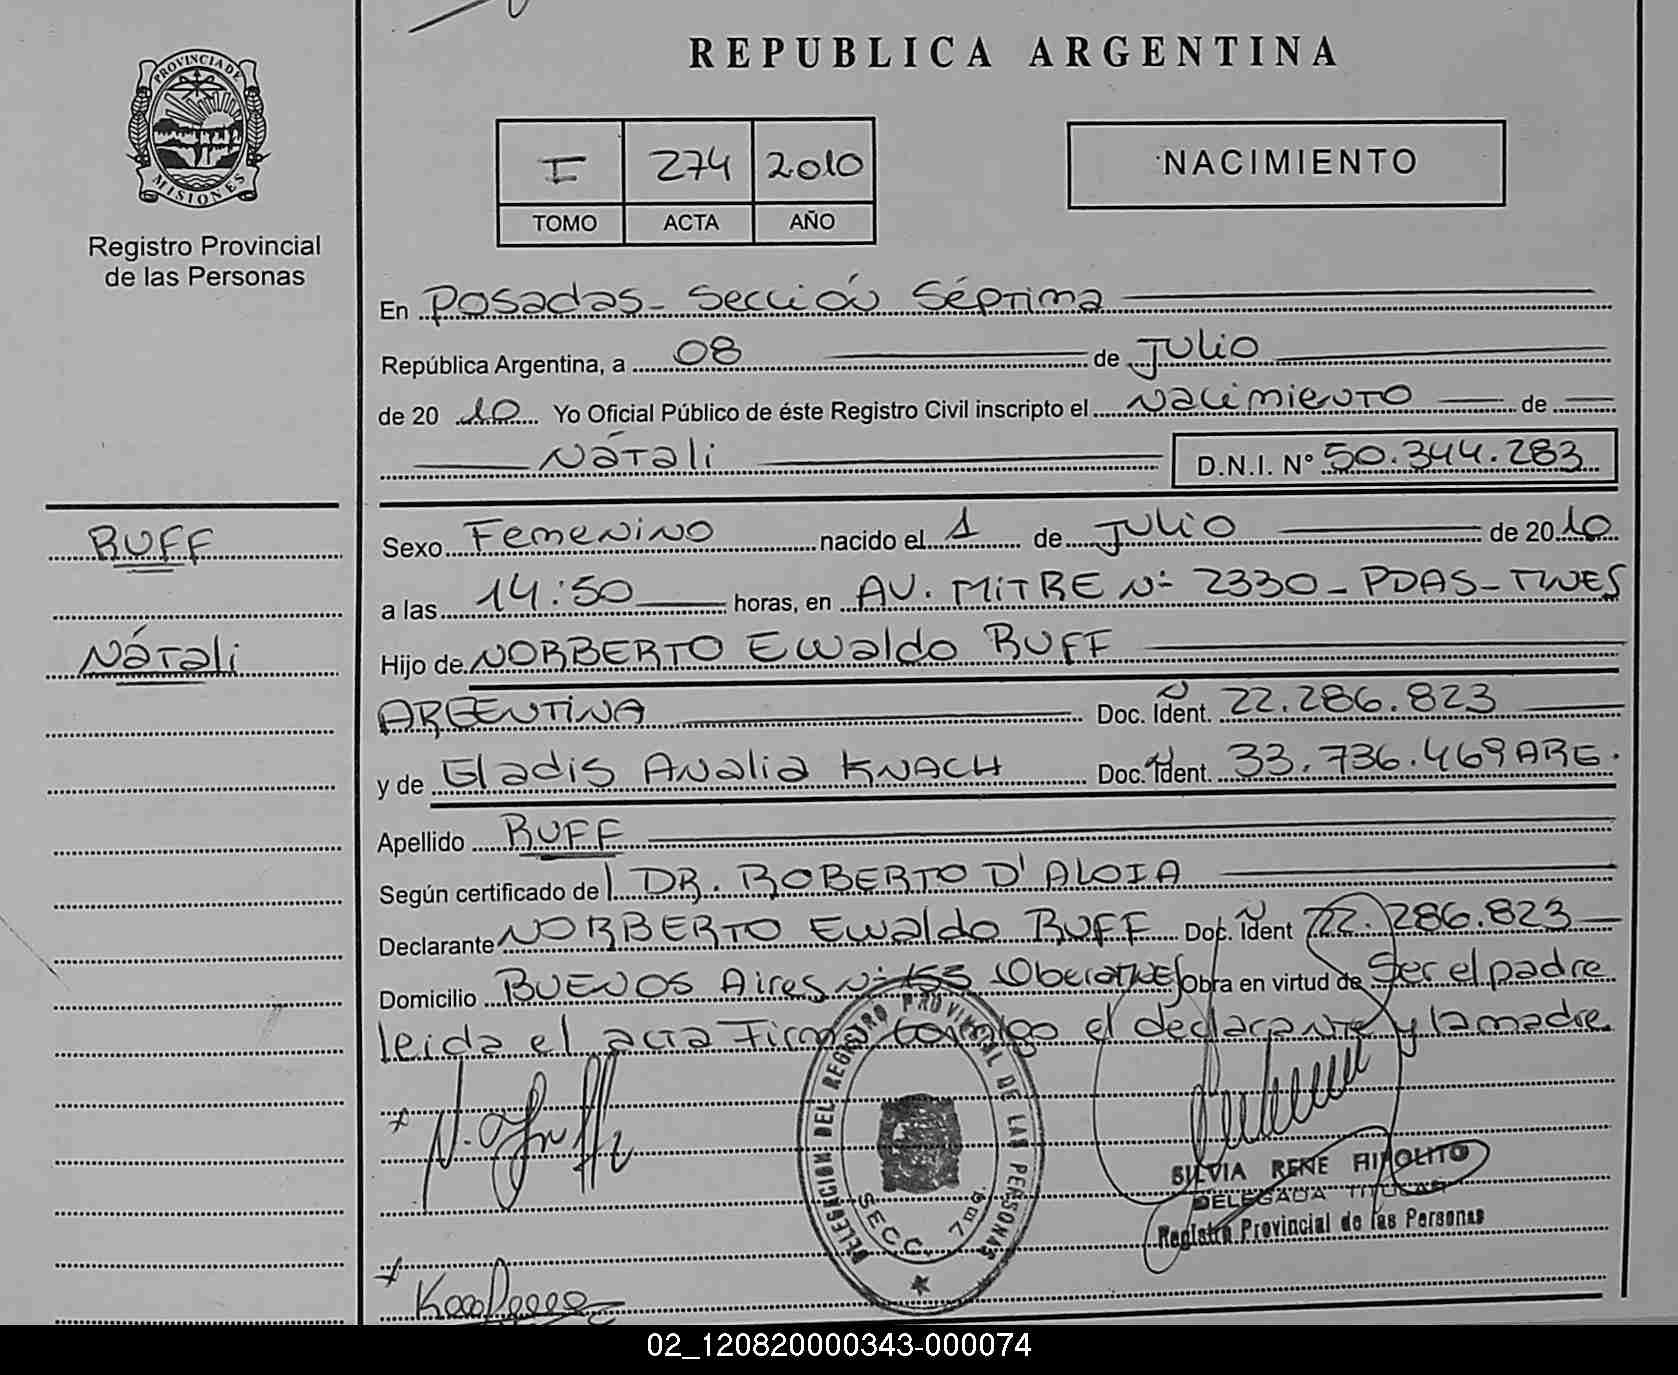 REPUBLICA ARGENTINA
PROVINCIA DE
MISIONES
Registro Provincial
de las Personas
I 274 2010
TOMO ACTA AÑO
NACIMIENTO
En Posadas - Sección Séptima
República Argentina, a 08 de Julio
de 20 10 Yo Oficial Público de éste Registro Civil inscripto el Nacimiento de
Nátali D.N.I. Nº 50.344.283
RUFF
Nátali
Sexo Femenino nacido el 1 de Julio de 20 10
a las 14:50 horas, en AV. MITRE Nº 2330 - PDAS - MNES
Hijo de NORBERTO Ewaldo RUFF
ARGENTINA Doc. Ident. 22.286.823
y de Gladis Analia KNACH Doc. Ident. 33.736.469 ARG.
Apellido RUFF
Según certificado del DR. ROBERTO D'ALOIA
Declarante NORBERTO Ewaldo RUFF Doc. Ident 22.286.823
Domicilio BUENOS Aires Nº 155 Obera Obra en virtud de Ser el padre
leida el acta Firma conmigo el declarante y la madre.
DELEGACION DEL REGISTRO PROVINCIAL DE LAS PERSONAS
SECC. 7ma.
SILVIA RENE HIPOLITO
DELEGADA TITULAR
Registro Provincial de las Personas
02_120820000343-000074